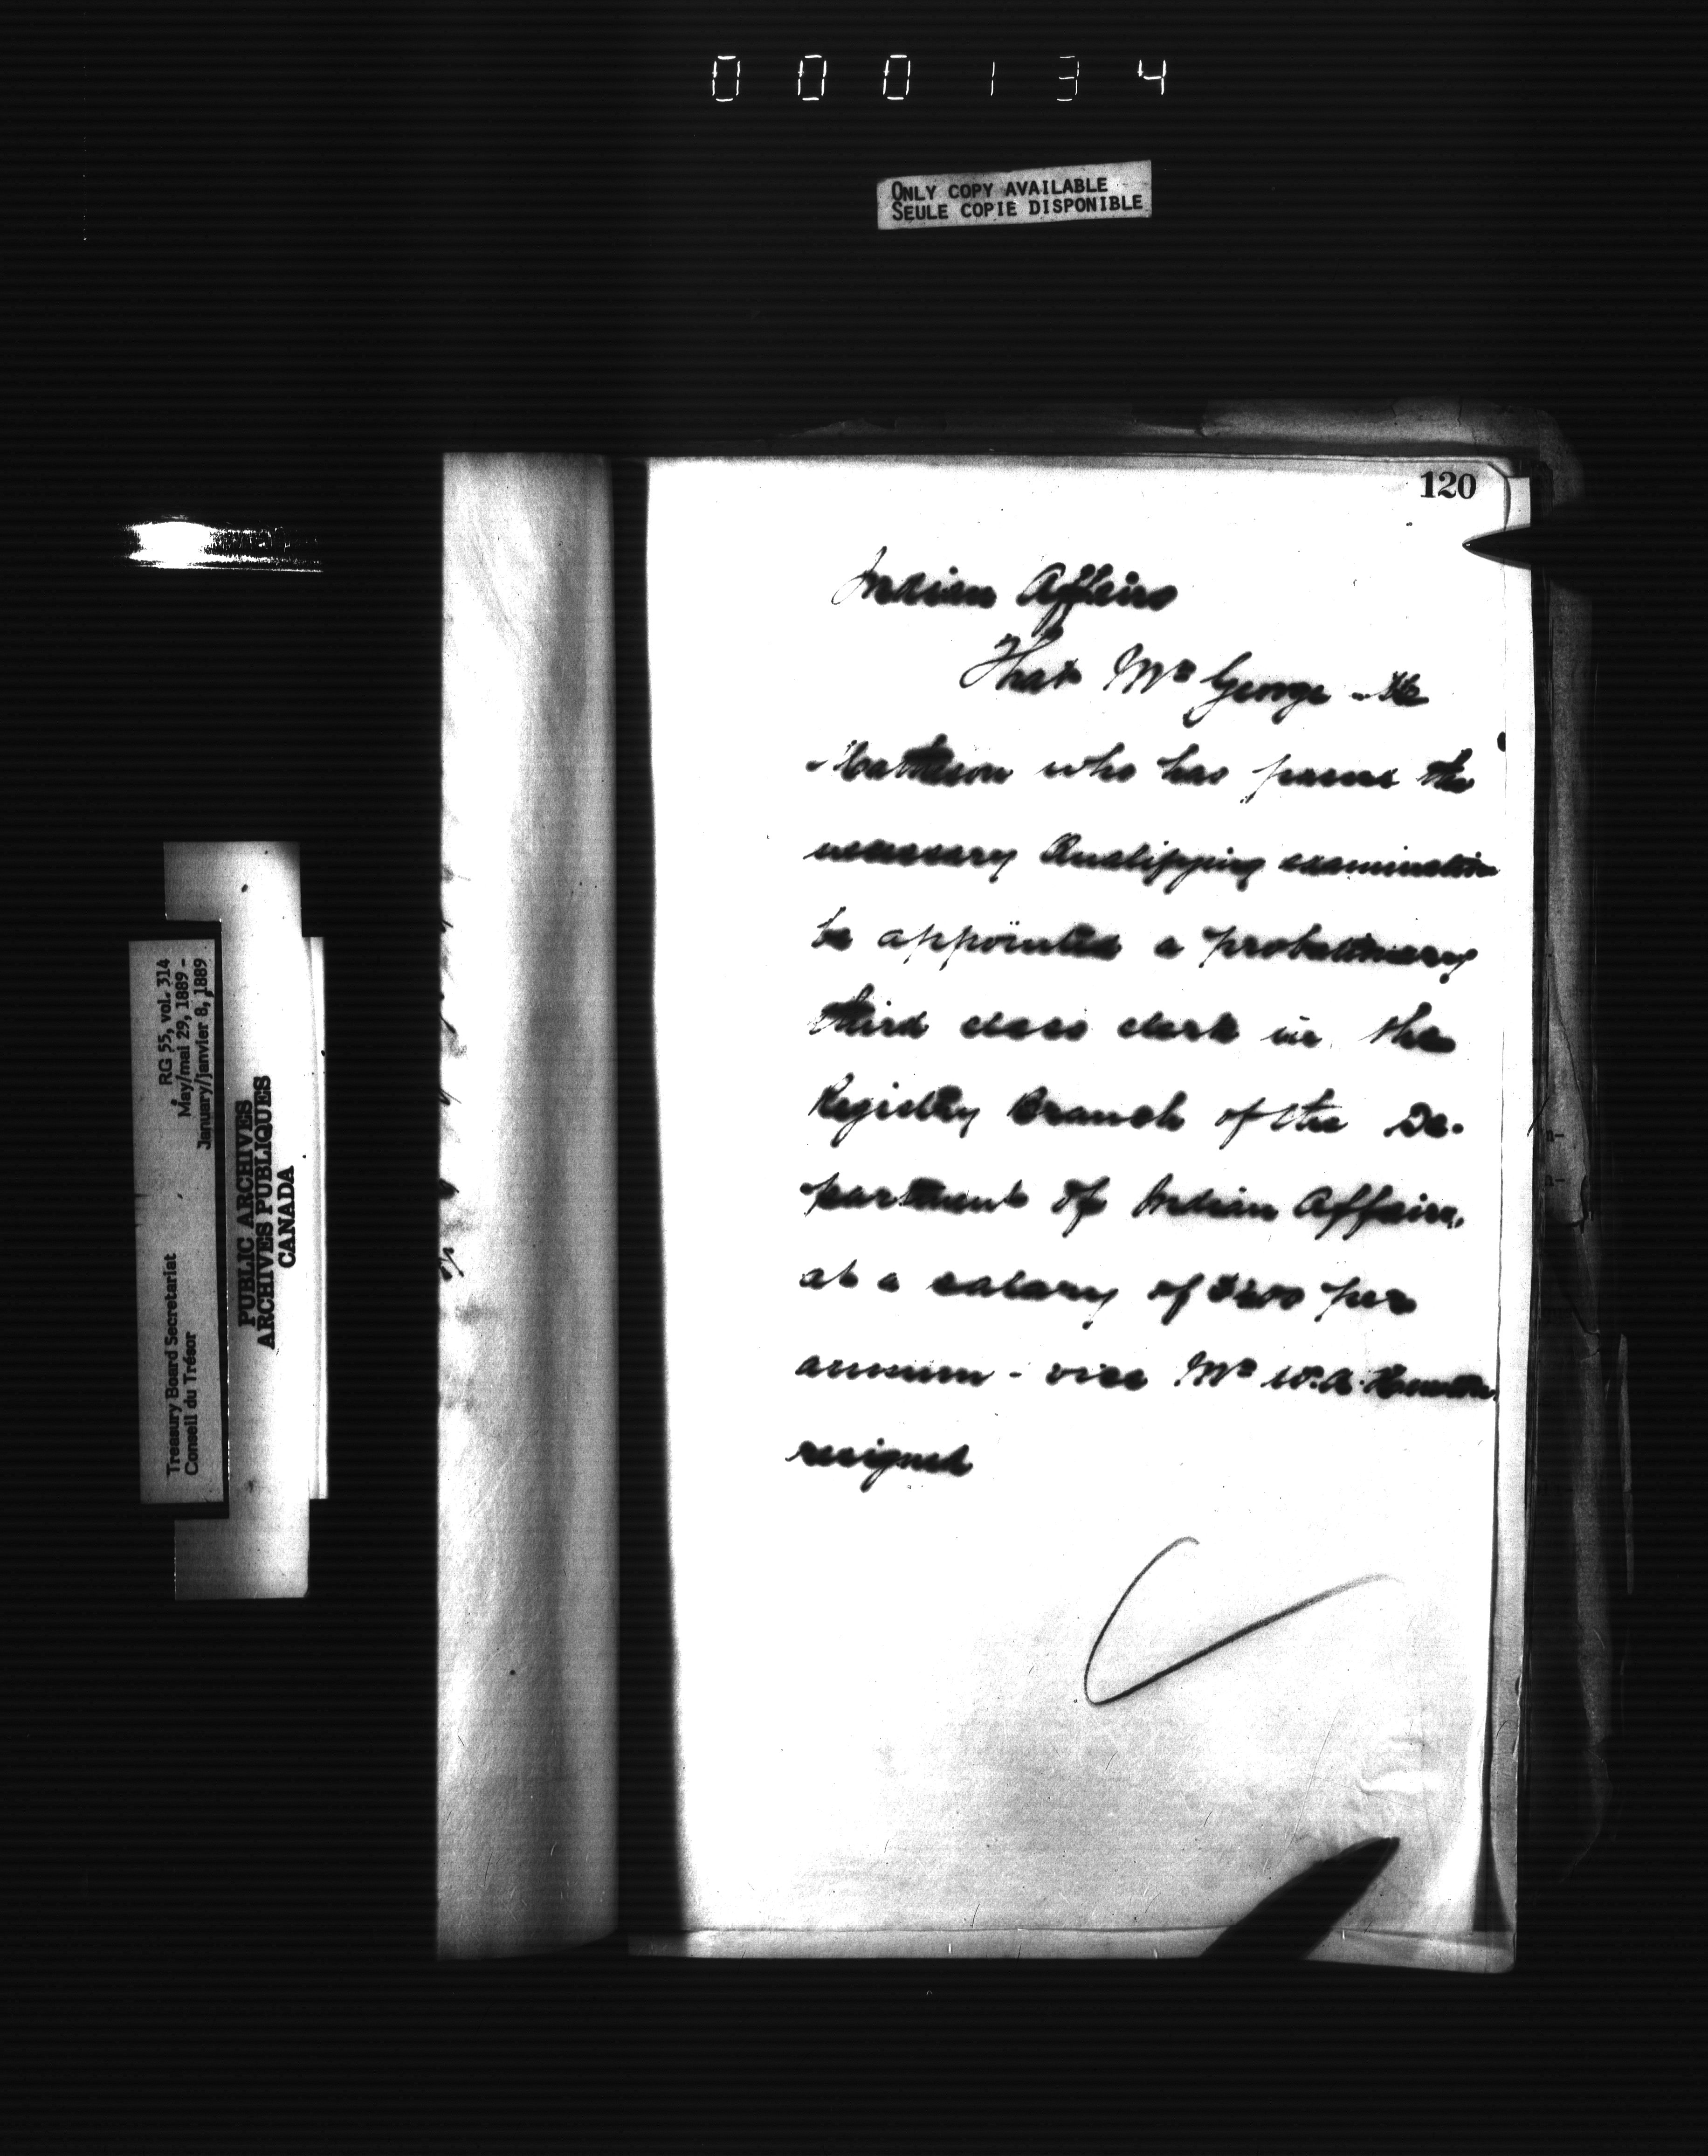 000134
ONLY COPY AVAILABLE
SEULE COPIE DISPONIBLE
120
Indian Affairs
That Mr George M
Matheson who has passed the
necessary Qualifying examination
be appointed a probationary
third class clerk in the
Registry Branch of the De-
partment of Indian Affairs,
at a salary of $400 per
annum - vice Mr W.A.
resigned
RG 55, vol. 314
May/mai 29, 1889 -
January/janvier 8, 1889
Treasury Board Secretariat
Conseil du Trésor
PUBLIC ARCHIVES
ARCHIVES PUBLIQUES
CANADA